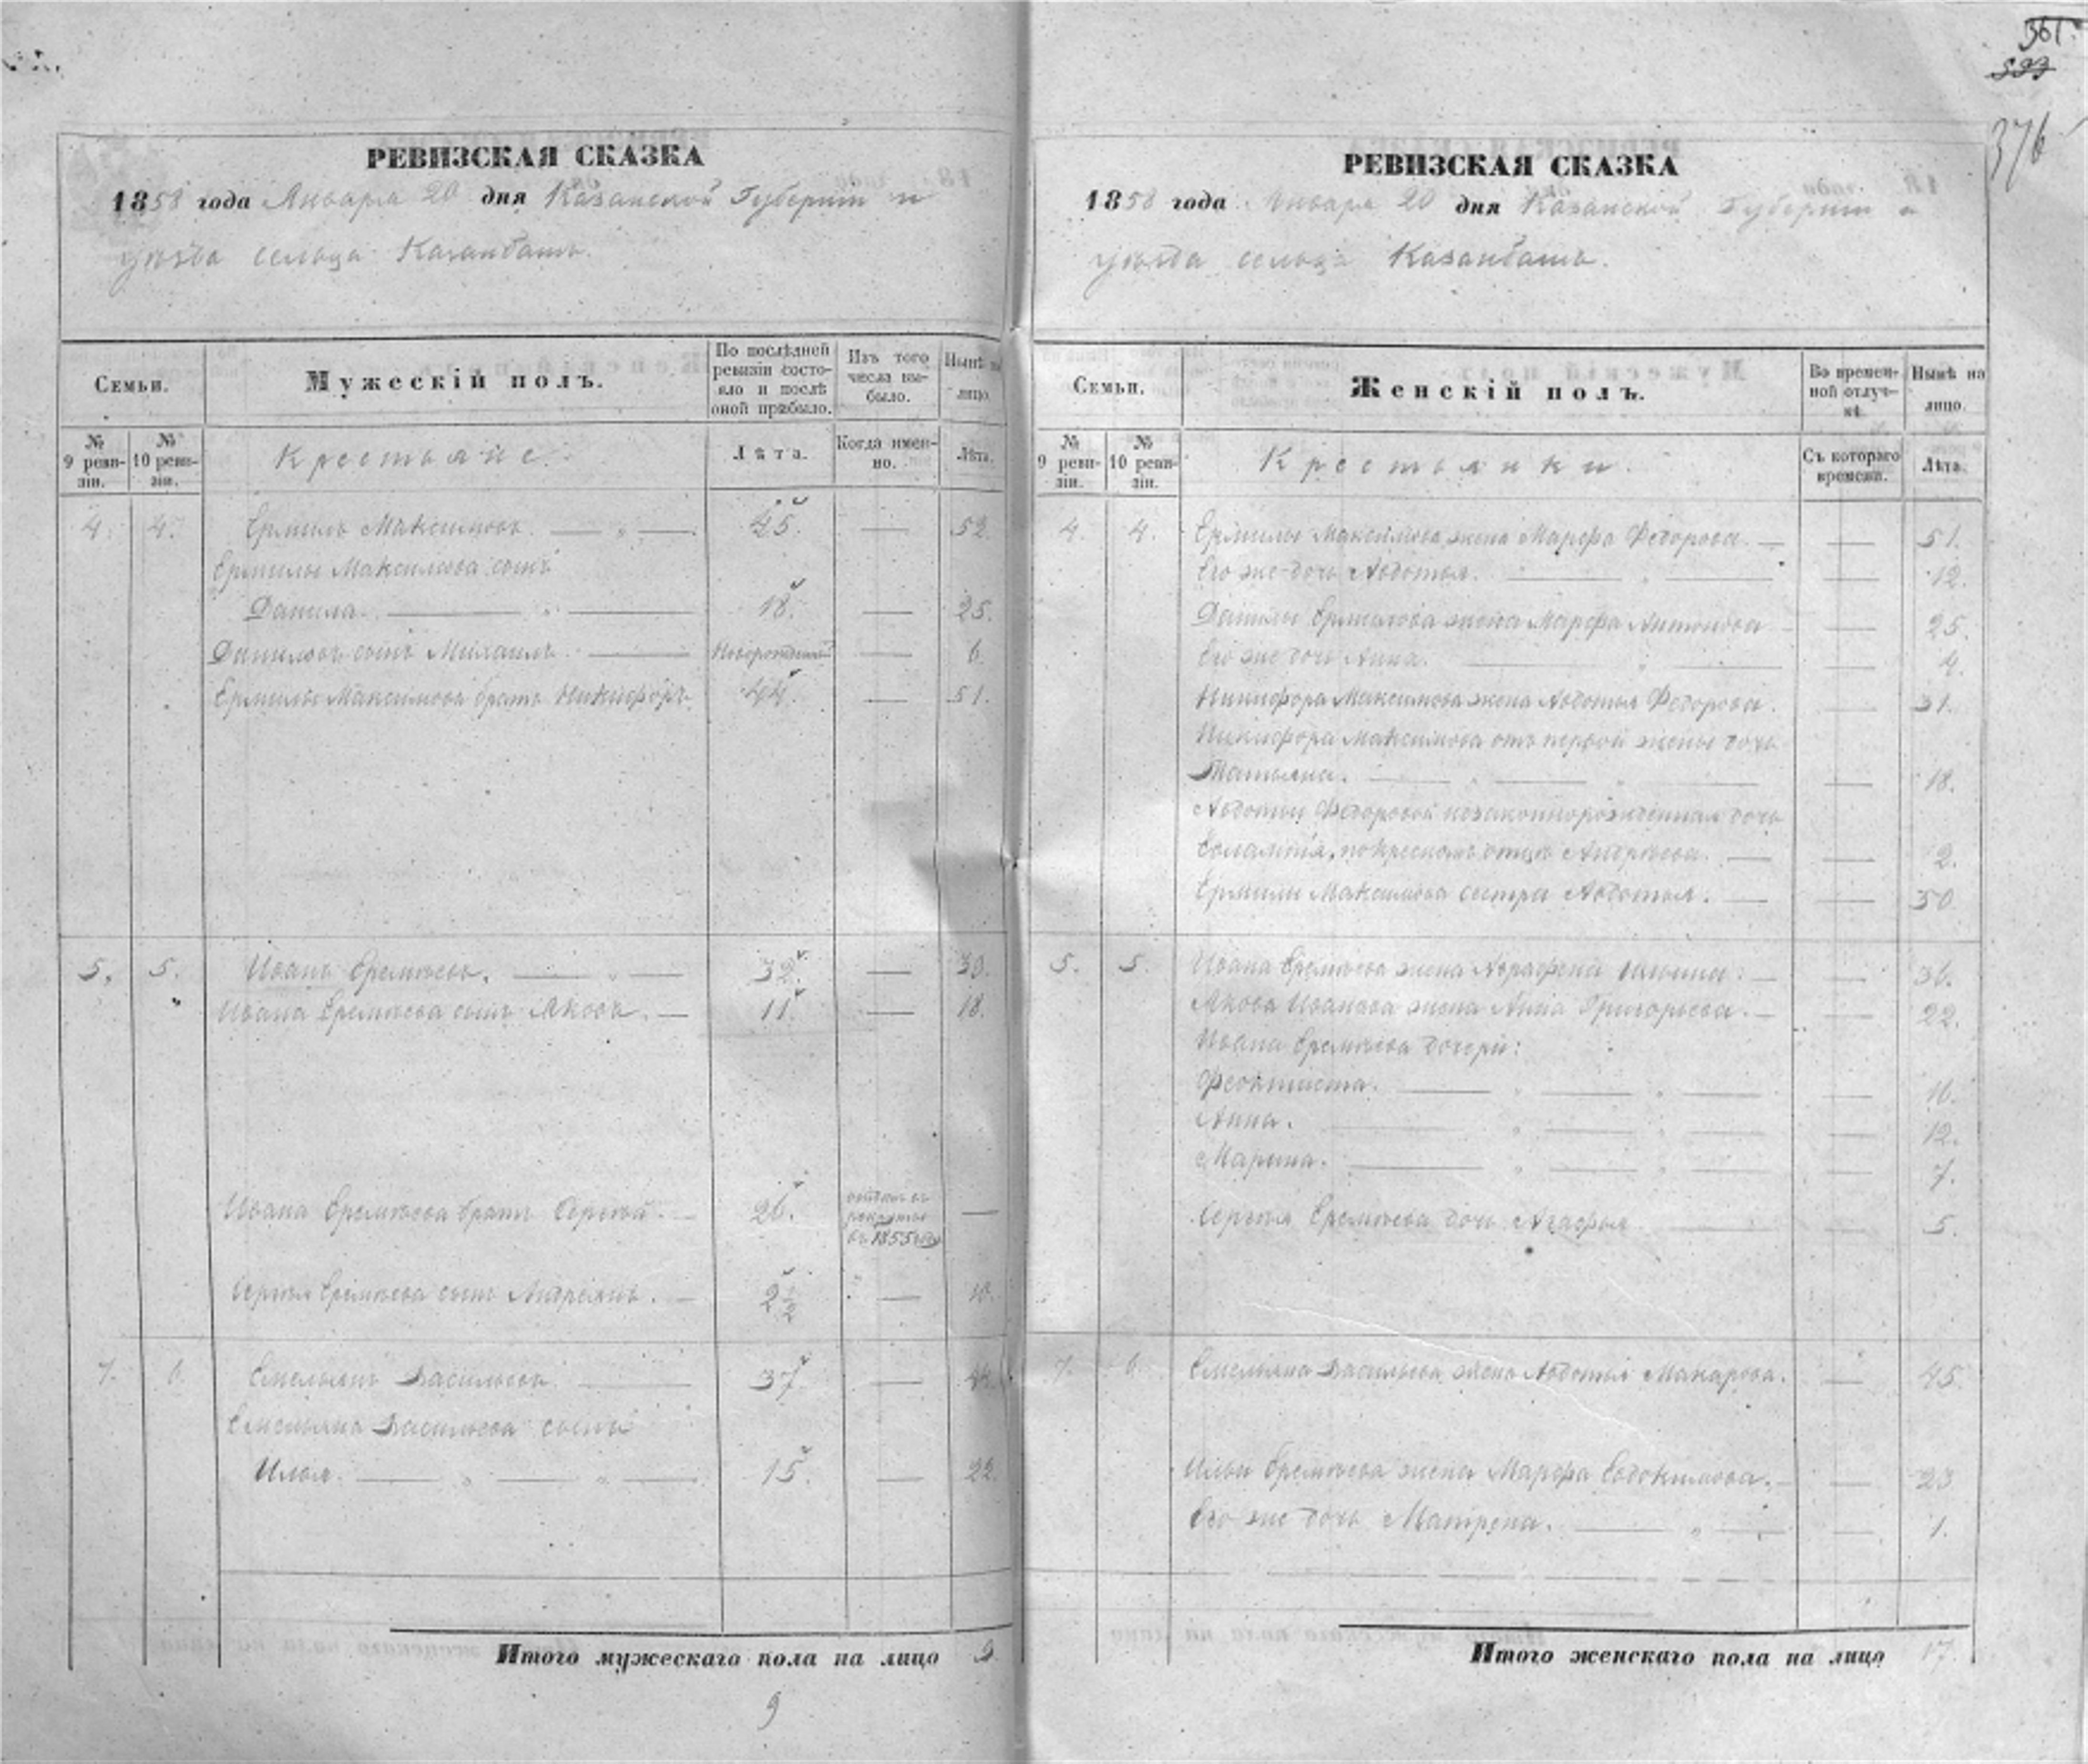 361.
533
376
РЕВИЗСКАЯ СКАЗКА
1858 года Января 20 дня Казанской Губерніи и
уѣзда сельца Казанбашъ.
Семьи.
Мужескій полъ.
По послѣдней ревизіи состояло и послѣ оной прибыло.
Изъ того числа выбыло.
Нынѣ на лицо.
№ 9 ревизіи.
№ 10 ревизіи.
Крестьяне.
Лѣта.
Когда именно.
Лѣта.
4. 4. Ермилъ Максимовъ. 45. 52.
Ермилы Максимова сынъ
Данила. 18. 25.
Даниловъ сынъ Михаилъ. Новорожденный 6.
Ермилы Максимова братъ Никифоръ. 44. 51.
5. 5. Иванъ Еремѣевъ. 32. 39.
Ивана Еремѣева сынъ Яковъ. 11. 18.
Ивана Еремѣева братъ Сергей. 26. отданъ въ рекруты въ 1855 году
Сергея Еремѣева сынъ Андреянъ. 2 1/2 10.
7. 6. Емельянъ Васильевъ. 37. 44.
Емельяна Васильева сынъ
Илья. 15. 22.
Итого мужескаго пола на лицо 9.
9
РЕВИЗСКАЯ СКАЗКА
1858 года Января 20 дня Казанской Губерніи и
уѣзда сельца Казанбашъ.
Семьи.
Женскій полъ.
Во временной отлучкѣ.
Нынѣ на лицо.
№ 9 ревизіи.
№ 10 ревизіи.
Крестьянки.
Съ котораго времени.
Лѣта.
4. 4. Ермилы Максимова жена Марфа Федорова. 51.
Его же дочь Авдотья. 12.
Данилы Ермилова жена Марфа Антонова 25.
Его же дочь Анна. 4.
Никифора Максимова жена Авдотья Федорова. 31.
Никифора Максимова отъ первой жены дочь
Татьяна. 18.
Авдотьи Федоровой незаконнорожденная дочь
Евлампія, по крестномъ отцѣ Андреева. 2.
Ермилы Максимова сестра Авдотья. 50.
5. 5. Ивана Еремѣева жена Аграфена Ильина. 36.
Якова Иванова жена Анна Григорьева. 22.
Ивана Еремѣева дочери:
Феоктиста. 16.
Анна. 12.
Марина. 7.
Сергея Еремѣева дочь Агафья 5.
7. 6. Емельяна Васильева жена Авдотья Макарова. 45.
Ильи Еремѣева жена Марфа Евдокимова. 23
Его же дочь Матрена. 1.
Итого женскаго пола на лицо 17.